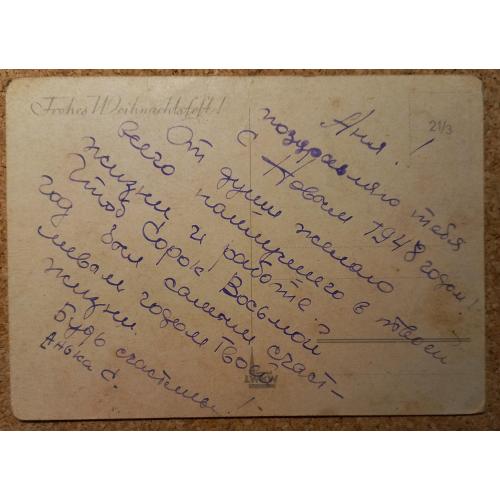 Frohes Weihnachtsfest!
21/3
Аня!
поздравляю тебя
с Новым 1948 годом!
От души желаю
всего наилучшего в твоей
жизни и работе.
Чтоб Сорок Восьмой
год был самым счаст-
ливым годом твоей
жизни.
Будь счастлива!
Анька С.